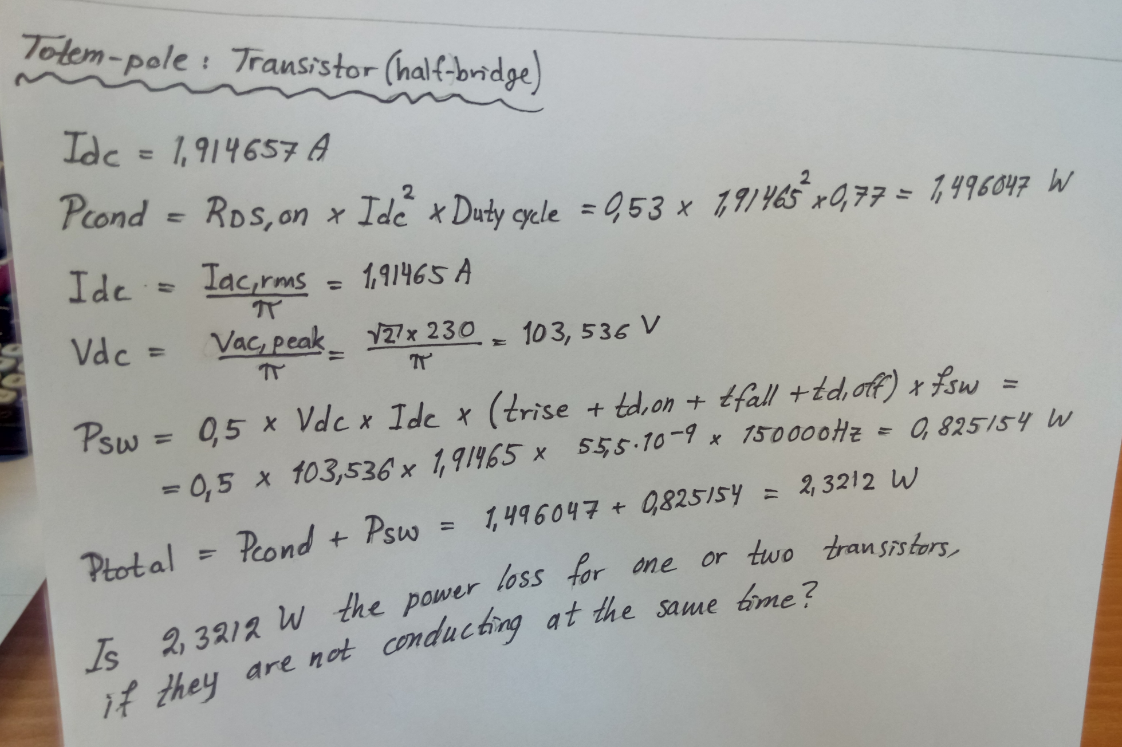 Totem-pole: Transistor (half-bridge)
Idc = 1,914657 A
Pcond = RDS,on x Idc² x Duty cycle = 0,53 x 1,91465² x 0,77 = 1,496047 W
Idc = Iac,rms / π = 1,91465 A
Vdc = Vac,peak / π = √2 x 230 / π = 103,536 V
Psw = 0,5 x Vdc x Idc x (trise + td,on + tfall + td,off) x fsw =
= 0,5 x 103,536 x 1,91465 x 55,5·10⁻⁹ x 150000Hz = 0,825154 W
Ptotal = Pcond + Psw = 1,496047 + 0,825154 = 2,3212 W
Is 2,3212 W the power loss for one or two transistors,
if they are not conducting at the same time?